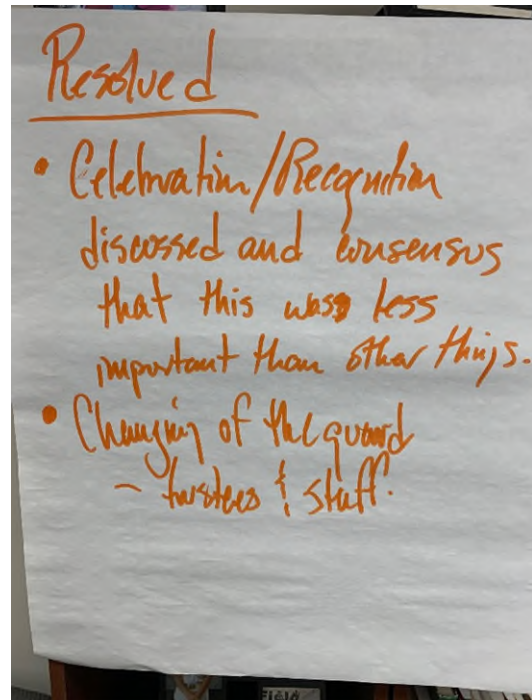 Resolved
• Celebration/Recognition
discussed and consensus
that this was less
important than other things.
• Changing of the guard
- trustees & staff.
FIELD